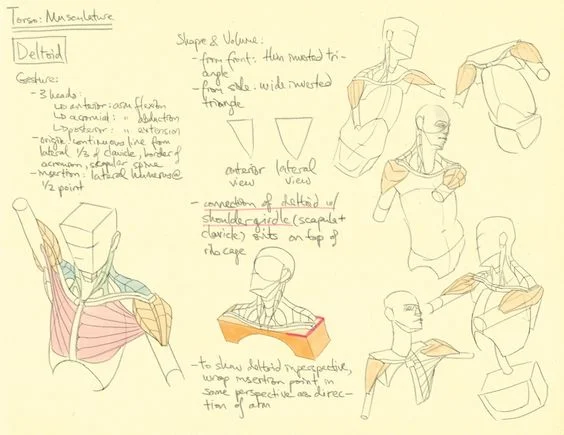 Torso: Musculature
Deltoid
Gesture:
- 3 heads:
↳ anterior: arm flexion
↳ acromial: " abduction
↳ posterior: " extension
- origin: continuous line from
lateral 1/3 of clavicle, border of
acromion, scapular spine
- insertion: lateral humerus @
1/2 point
Shape & Volume:
- from front: thin inverted tri-
angle
- from side: wide inverted
triangle
anterior view
lateral view
- connection of deltoid w/
shoulder girdle (scapula +
clavicle) sits on top of
rib cage
- to show deltoid in perspective,
wrap insertion point in
same perspective as direc-
tion of arm